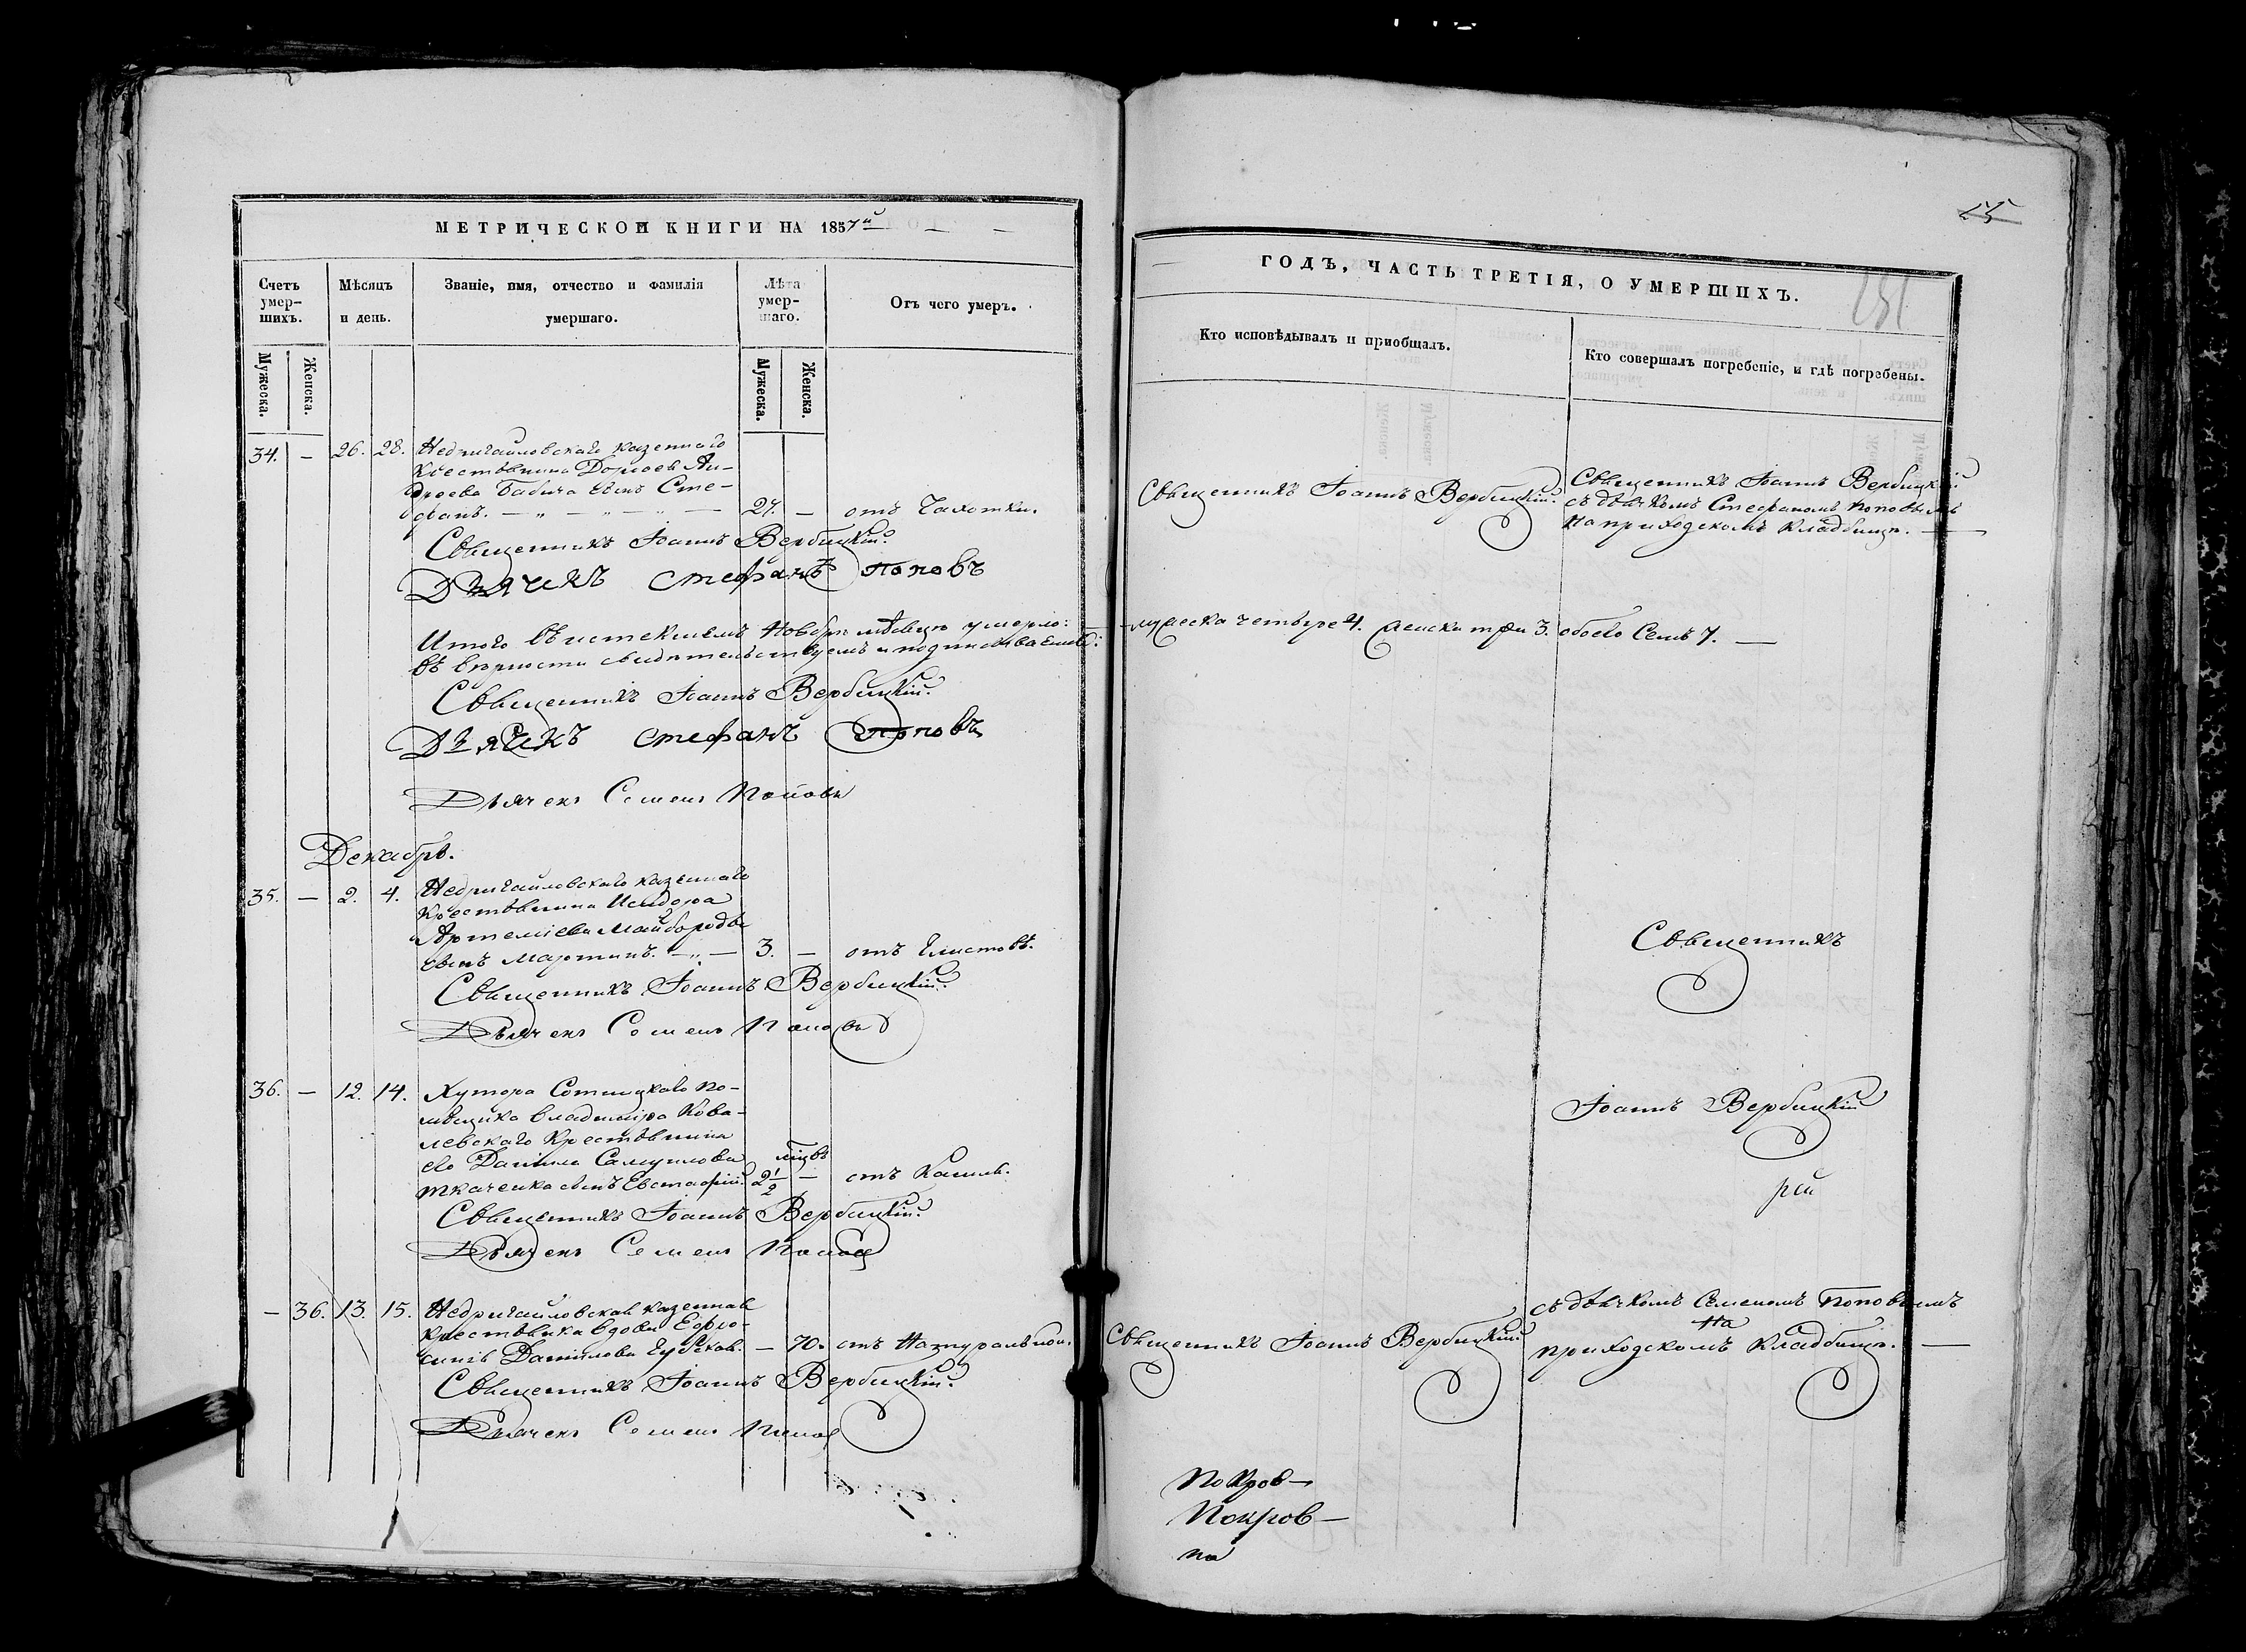 МЕТРИЧЕСКОЙ КНИГИ НА 1857й
Счетъ умер-шихъ.
Мѣсяцъ и день.
Званіе, имя, отчество и фамилія умершаго.
Лѣта умер-шаго.
Отъ чего умеръ.
Мужеска.
Женска.
Мужеска.
Женска.
34. — 26. 28. Недригайловскаго казеннаго
Крестьянина Дорофея Ан-
дреева Бабича сынъ Сте-
фанъ. — „ — „ — „ — 27. — отъ Чахотки.
Священникъ Іоаннъ Вербицкій.
Дьячекъ Стефанъ Поповъ
Итого въ истекшемъ Ноябрѣ мѣсяцѣ умерло:
въ вѣрности свидѣтельствуемъ и подписываемся:
Священникъ Іоаннъ Вербицкій.
Дьячекъ Стефанъ Поповъ
Дьячекъ Семенъ Поповъ
Декабрь.
35. — 2. 4. Недригайловскаго казеннаго
Крестьянина Исидора
Артеміева Майбороды
сынъ Мартинъ. — „ — 3. — отъ Глистовъ.
Священникъ Іоаннъ Вербицкій.
Дьячекъ Семенъ Поповъ
36. — 12. 14. Хутора Сотницкаго по-
мѣщика Владиміра Кова-
левскаго Крестьянина
его Даніила Самуилова
Ткаченка сынъ Евстафій. 2 1/2 мцвъ — отъ Кашля.
Священникъ Іоаннъ Вербицкій.
Дьячекъ Семенъ Попов
— 36. 13. 15. Недригайловская казенная
Крестьянка вдова Евфро-
синія Даніилова — 70. отъ Натуральной.
Священникъ Іоаннъ Вербицкій.
Дьячекъ Семенъ Попов
25
ГОДЪ, ЧАСТЬ ТРЕТІЯ, О УМЕРШИХЪ.
151
Кто исповѣдывалъ и пріобщалъ.
Кто совершалъ погребеніе, и гдѣ погребены.
Священникъ Іоаннъ Вербицкій.
Священникъ Іоаннъ Вербицкій
съ дьячкомъ Стефаномъ Поповымъ
на приходскомъ кладбищѣ. —
мужеска четыре 4. женска три 3. обоего Семь 7. —
Священникъ
Іоаннъ Вербицкій
рей
съ дьячкомъ Семеномъ Поповымъ
на
Священникъ Іоаннъ Вербицкій
приходскомъ Кладбищѣ. —
Покров—
Покров—
на